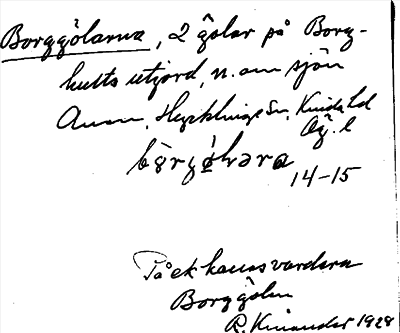 Borggölarna, 2 gölar på Borg-
hults utjord, n. om sjön
Ånen, Hycklinge Sn, Kinda hd
Ög. l
14-15
På ek kallas vardera
Borggölen
R. Kinander 1928